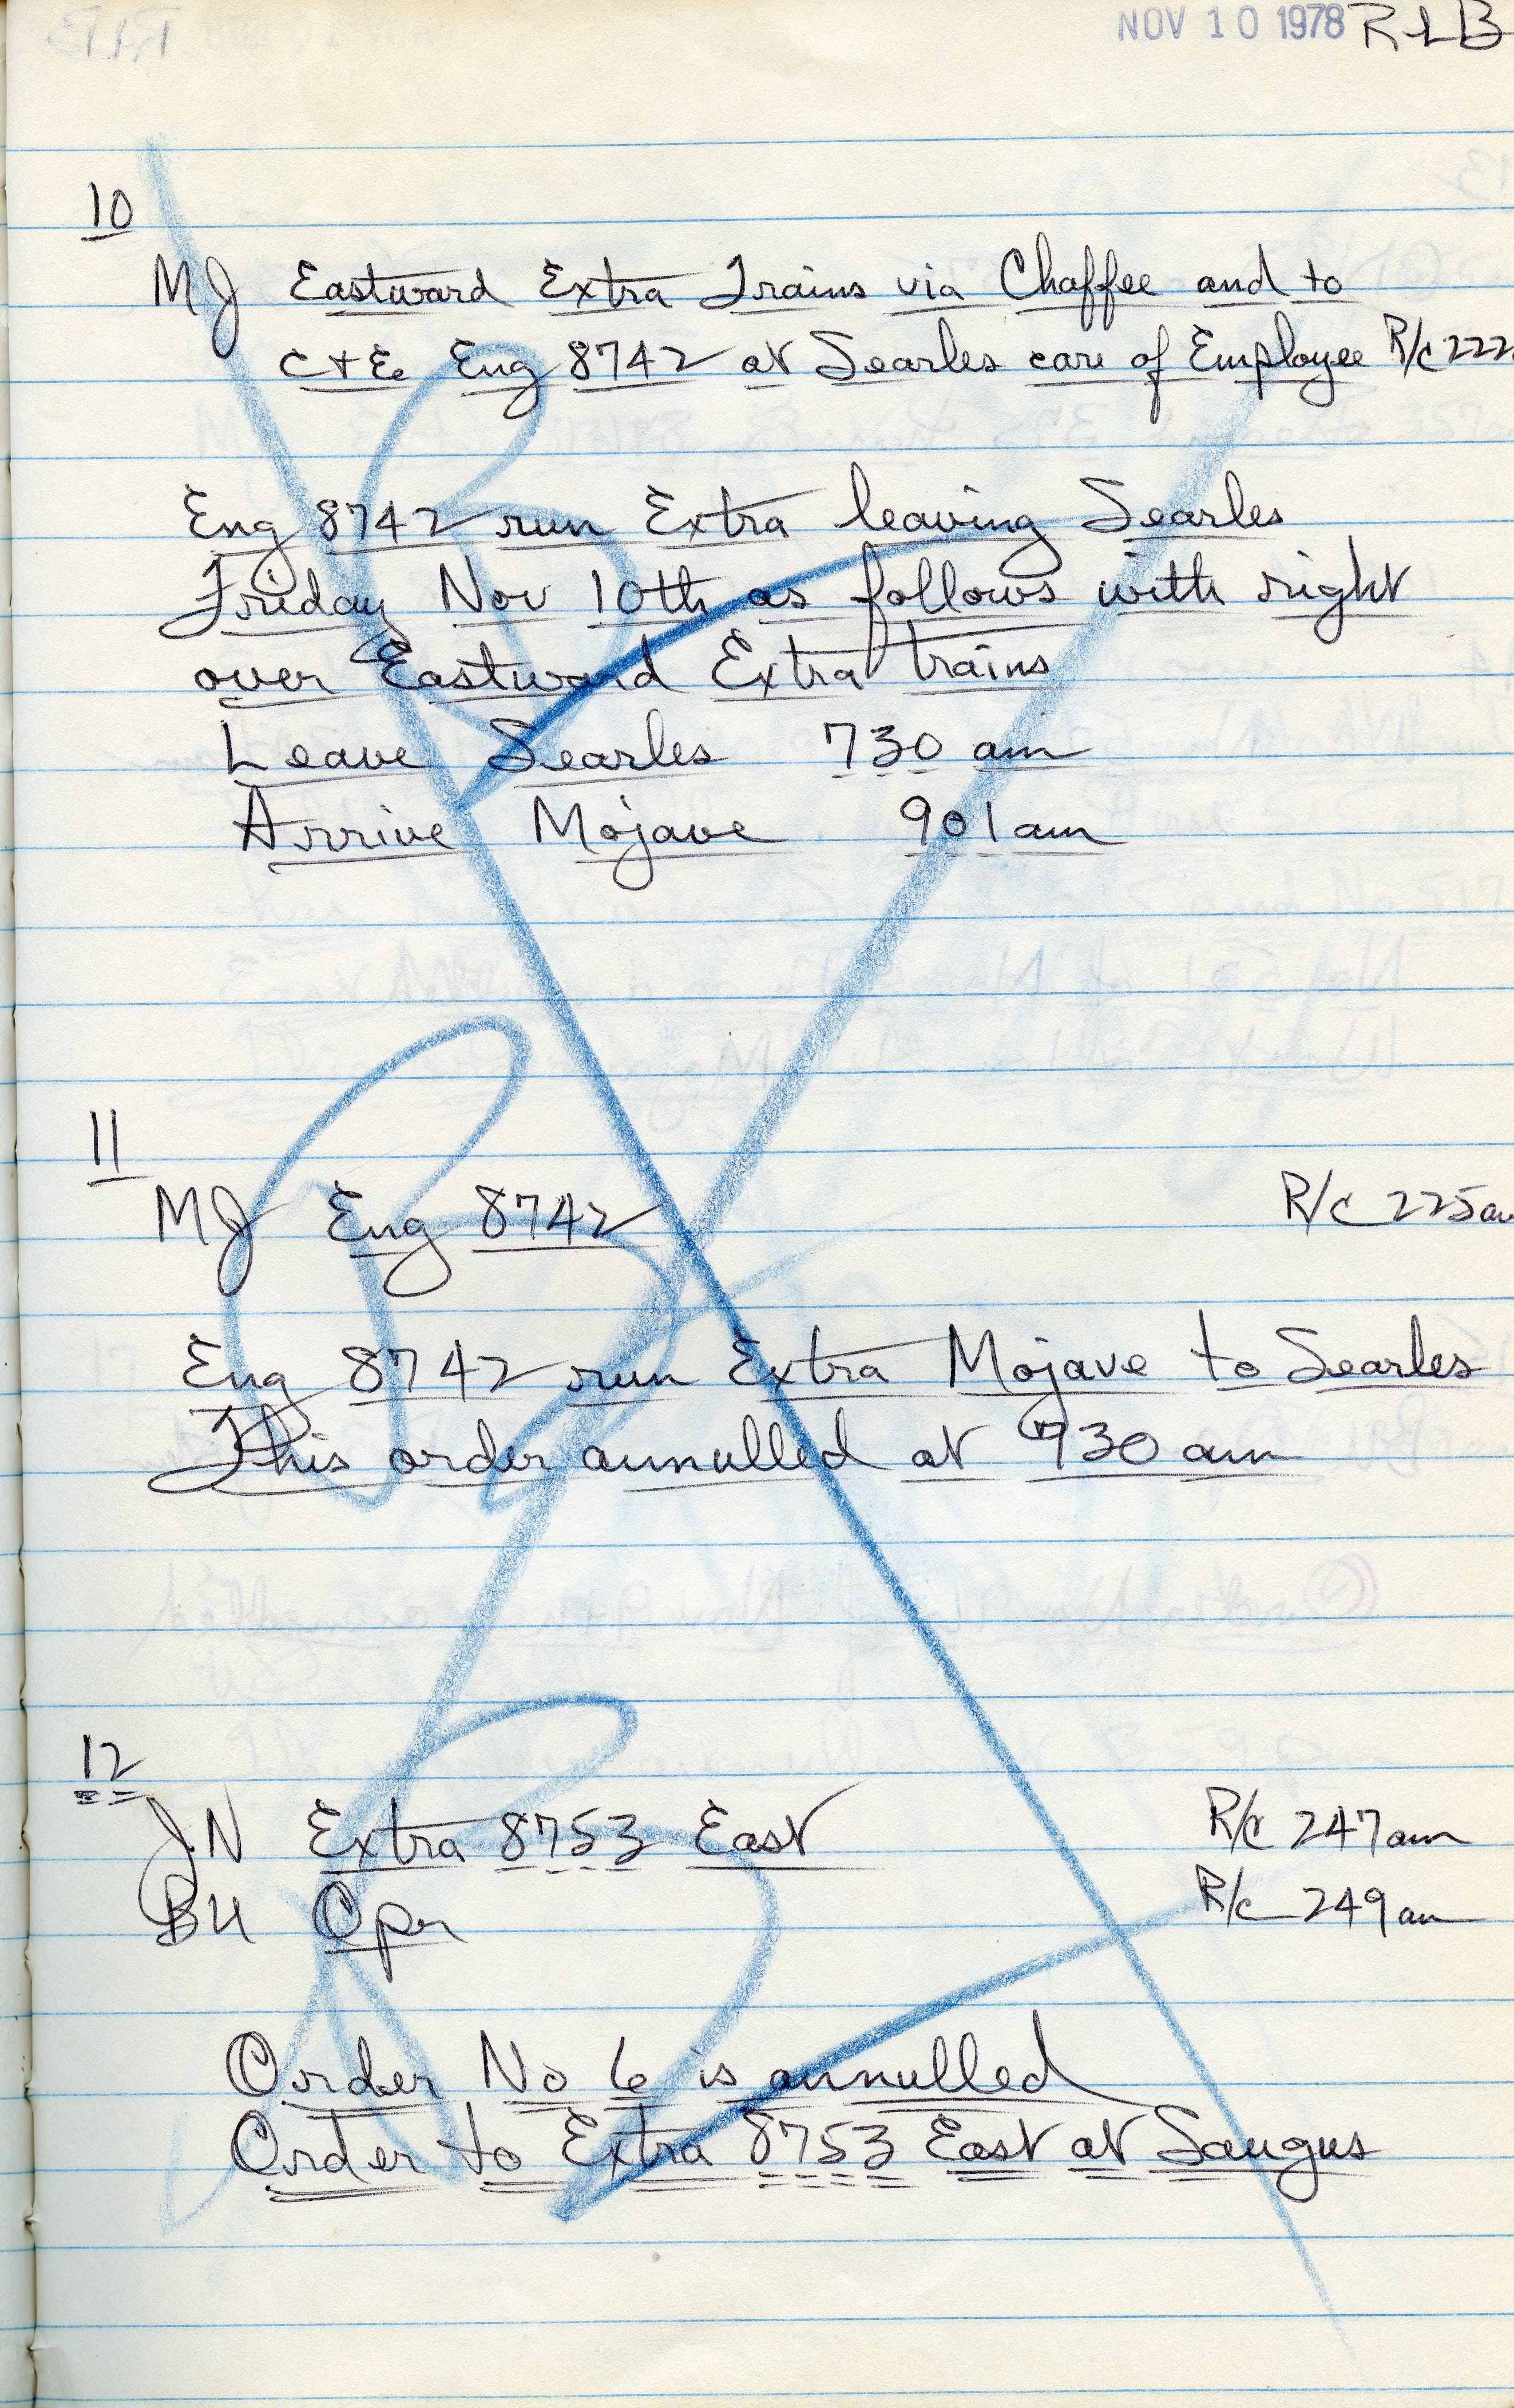 NOV 10 1978 RLB
10
MJ Eastward Extra Trains via Chaffee and to
C+E Eng 8742 at Searles care of Employee R/c 222
Eng 8742 run Extra leaving Searles
Friday Nov 10th as follows with right
over Eastward Extra trains
Leave Searles 730 am
Arrive Mojave 901 am
11
MJ Eng 8742 R/c 225 am
Eng 8742 run Extra Mojave to Searles
This order annulled at 730 am
12
JN Extra 8753 East R/c 247 am
BU Opr R/c 249 am
Order No 6 is annulled
Order to Extra 8753 East at Saugus